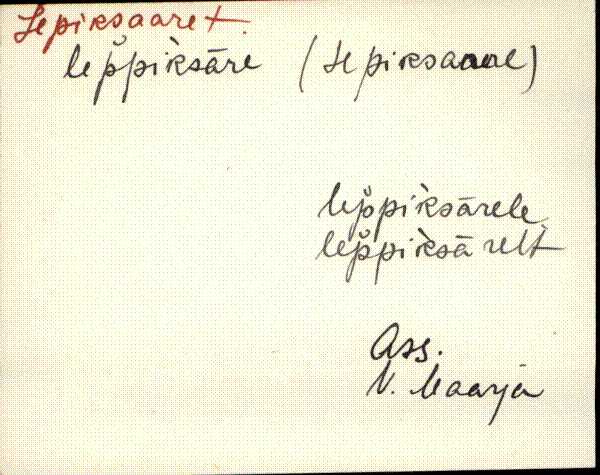 Lepiksaaret.
lep̆pìksāre (Lepiksaare)
lep̆pìksārele
lep̆pìksārelt
Ass.
V. Maarja